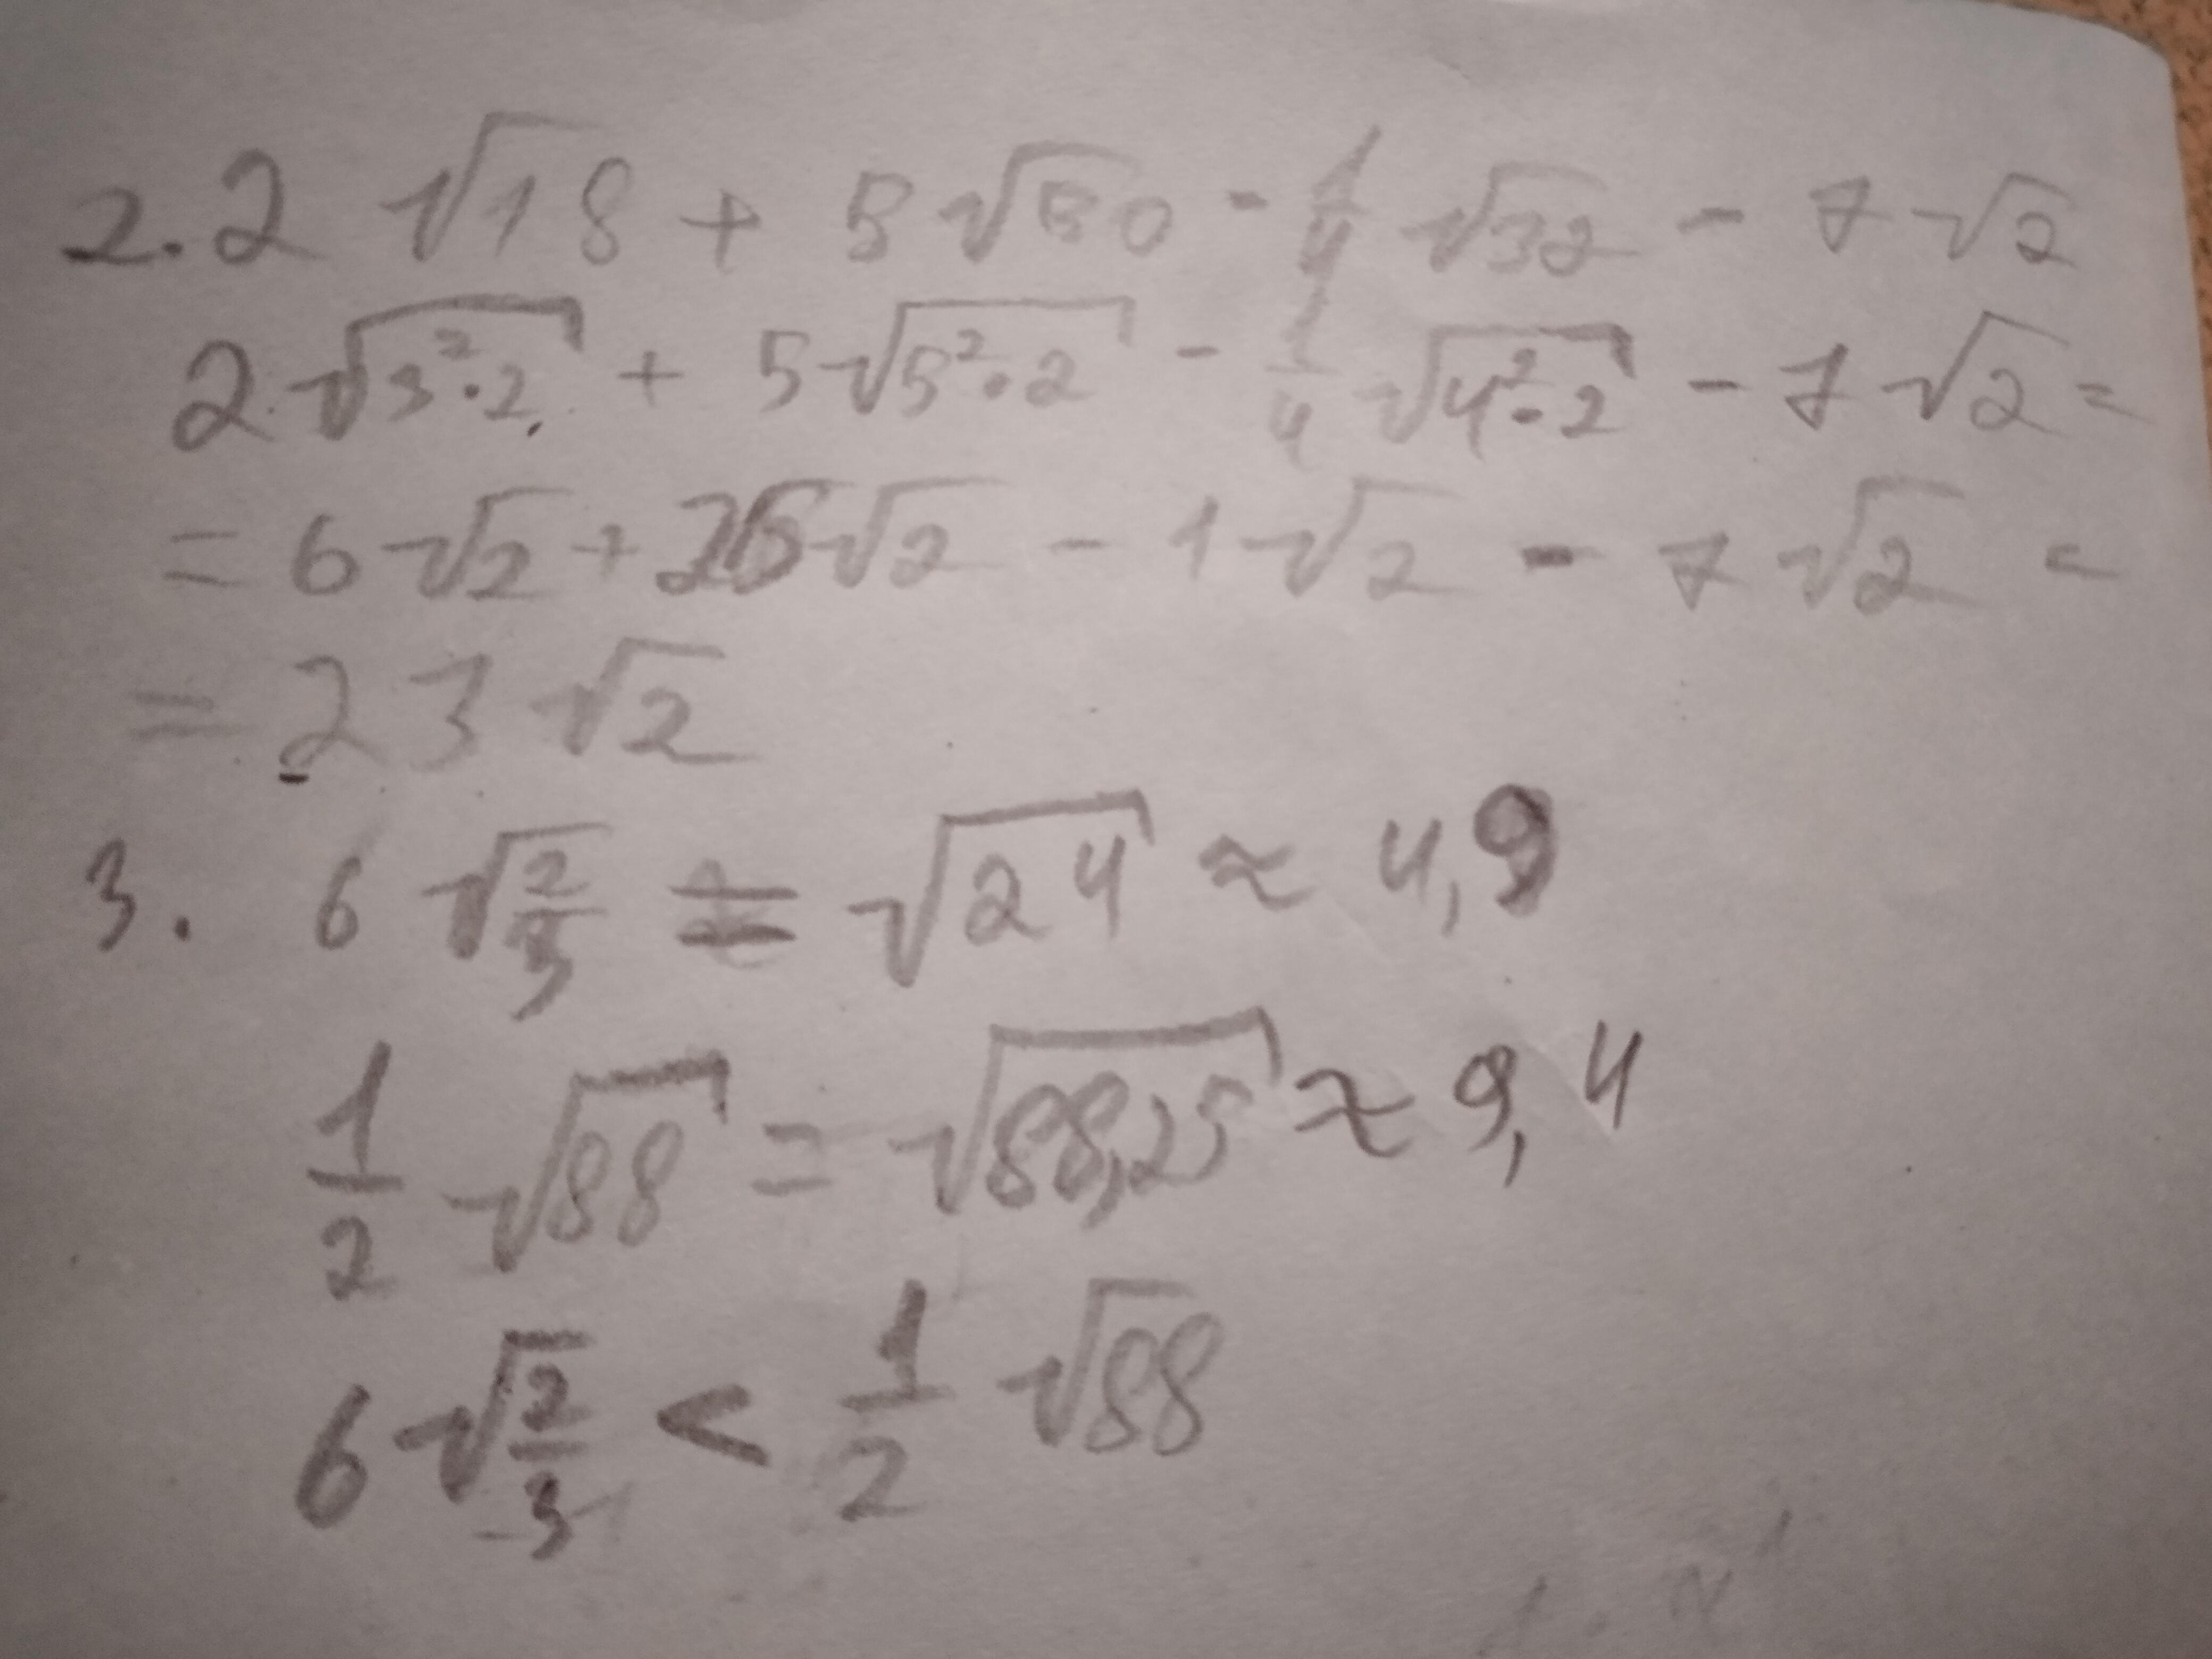 2. 2 √18 + 5√50 - 1/4 √32 - 7√2
2√(3²·2) + 5√(5²·2) - 1/4 √(4²·2) - 7√2 =
= 6√2 + 25√2 - 1√2 - 7√2 =
= 23√2
3. 6√(2/3) = √24 ≈ 4,9
1/2 √88 = √88,25 ≈ 9,4
6√(2/3) < 1/2 √88